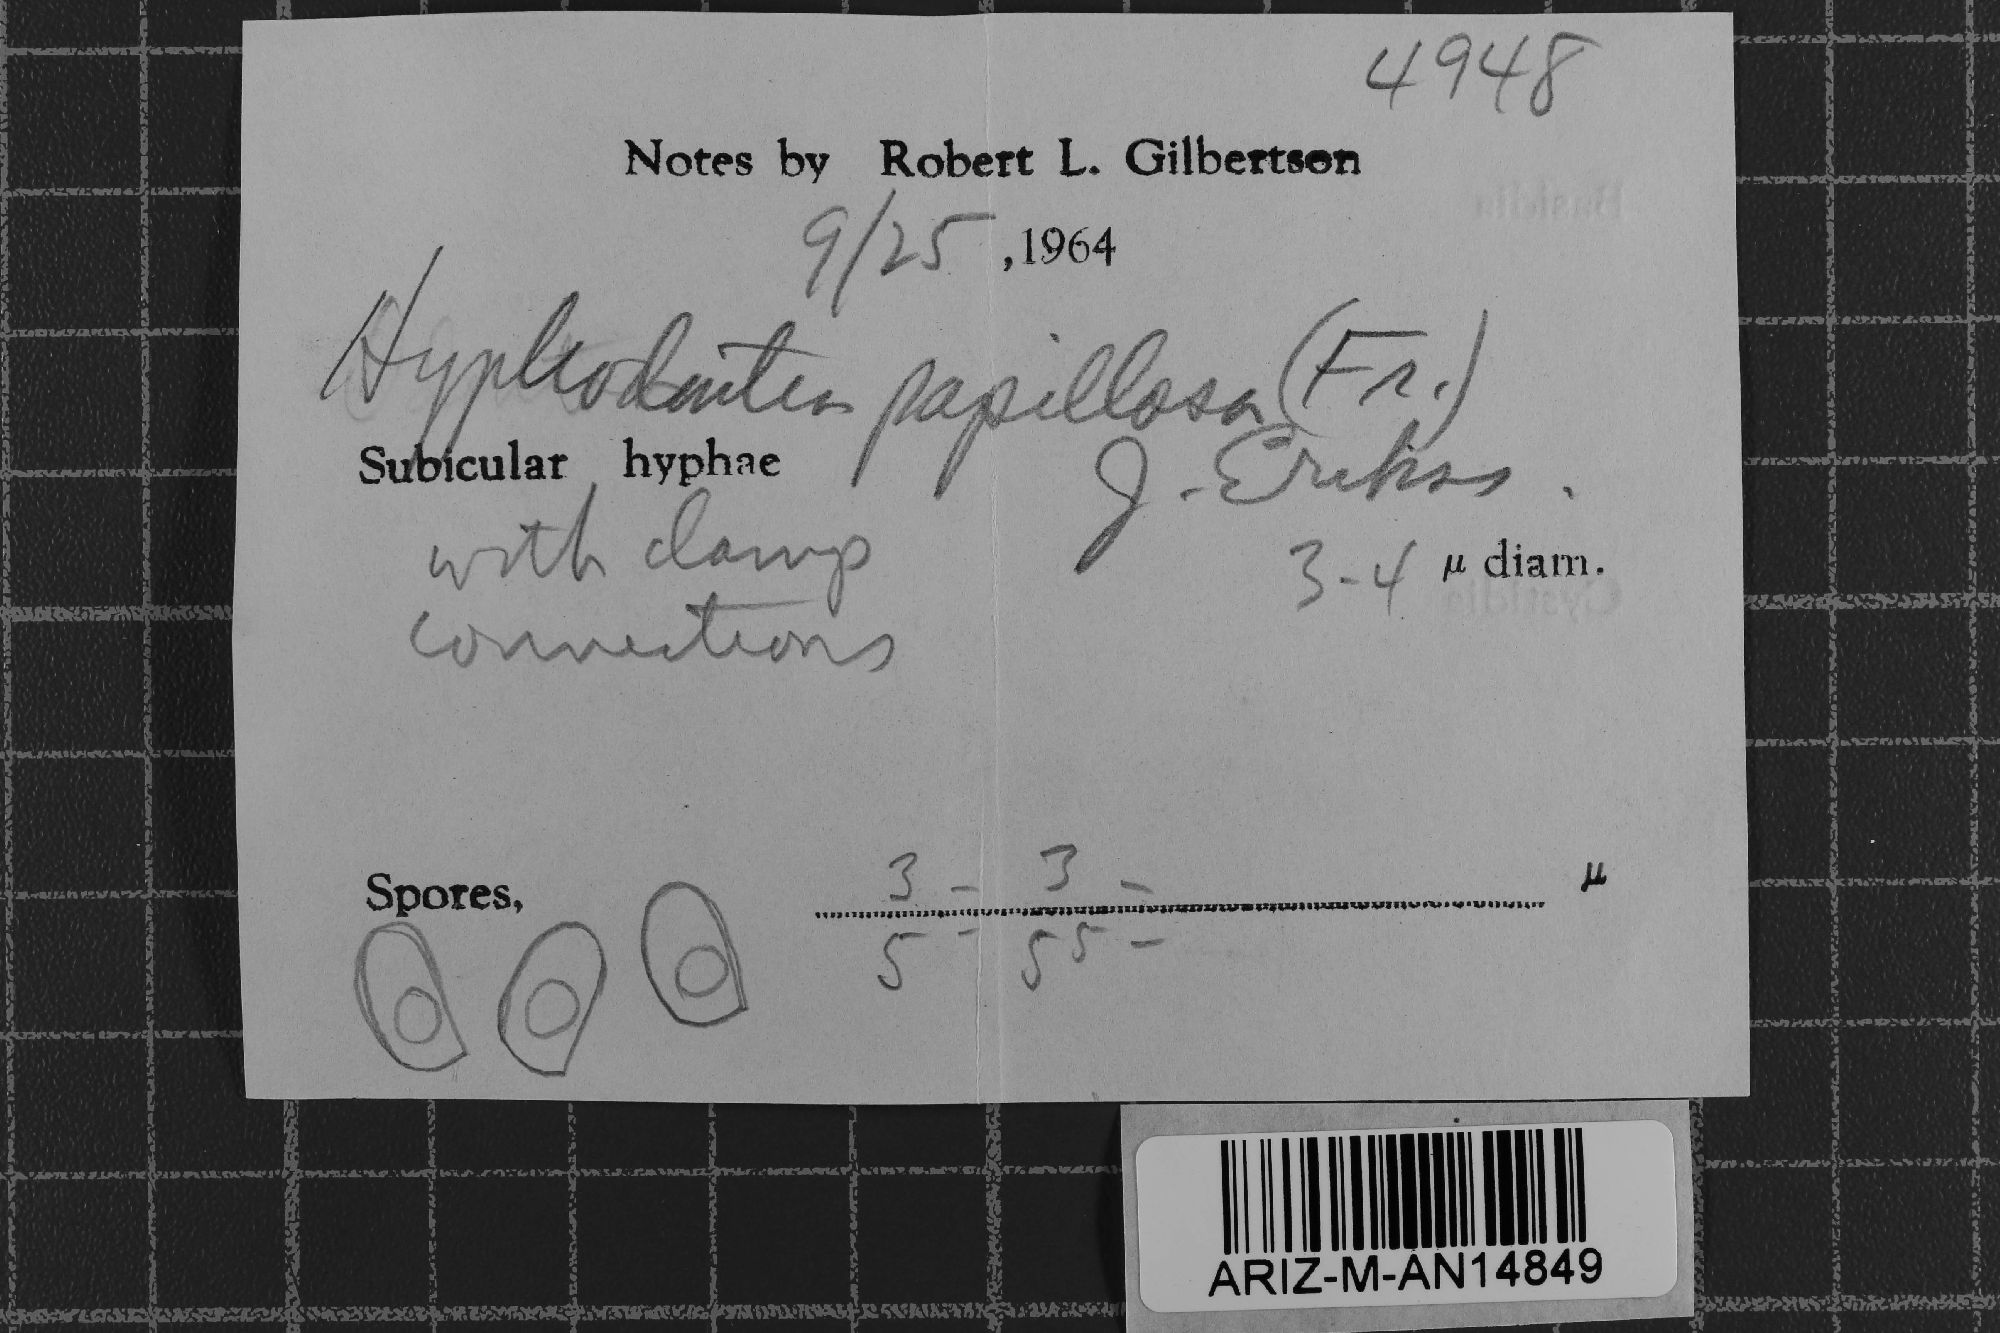 4948
Notes by Robert L. Gilbertson
9/25, 1964
Hyphodontia papillosa (Fr.)
J. Erikss.
Subicular hyphae
with clamp
connections
3-4 μ diam.
Spores,
3 - 3 - μ
5 - 55 -
ARIZ-M-AN14849